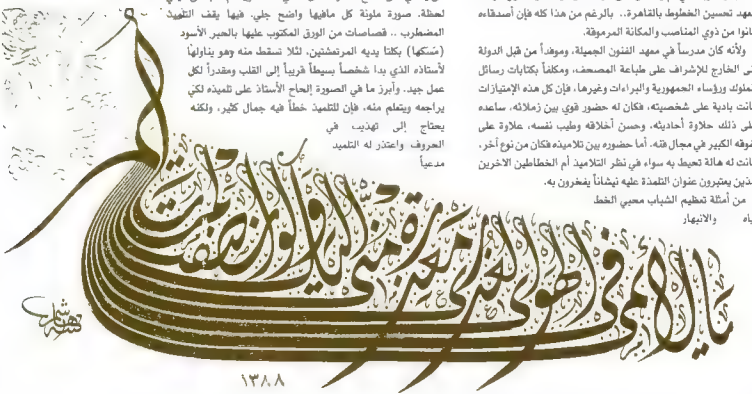 عهد تحسين الخطوط بالقاهرة.. بالرغم من هذا كله فإن أصدقاءه
انوا من ذوي المناصب والمكانة المرموقة.
ولأنه كان مدرساً في معهد الفنون الجميلة، وموفداً من قبل الدولة
لى الخارج للإشراف على طباعة المصحف، ومكلفاً بكتابات رسائل
لملوك ورؤساء الجمهورية والبراءات وغيرها، فإن كل هذه الإمتيازات
انت بادية على شخصيته، فكان له حضور قوي بين زملائه، ساعده
لى ذلك حلاوة أحاديثه، وحسن أخلاقه وطيب نفسه، علاوة على
فوقه الكبير في مجال فنه. أما حضوره بين تلاميذه فكان من نوع آخر.
انت له هالة تحيط به سواء في نظر التلاميذ أم الخطاطين الآخرين
لذين يعتبرون عنوان التلمذة عليه نيشاناً يفخرون به.
من أمثلة تعظيم الشباب محبي الخط
ياه والانبهار
لحظة. صورة ملونة كل مافيها واضح جلي. فيها يقف التلميذ
المضطرب .. قصاصات من الورق المكتوب عليها بالحبر الأسود
(مَسكها) بكلتا يديه المرتعشتين، لئلا تسقط منه وهو يناولها
لأستاذه الذي بدا شخصاً بسيطاً قريباً إلى القلب ومقدراً لكل
عمل جيد. وأبرز ما في الصورة إلحاح الأستاذ على تلميذه لكي
يراجعه ويتعلم منه، فإن للتلميذ خطاً فيه جمال كثير، ولكنه
يحتاج إلى تهذيب في
الحروف واعتذر له التلميذ
مدعياً
يا لائمي في الهوى العذري معذرة مني إليك ولو أنصفت لم تلم
١٣٨٨